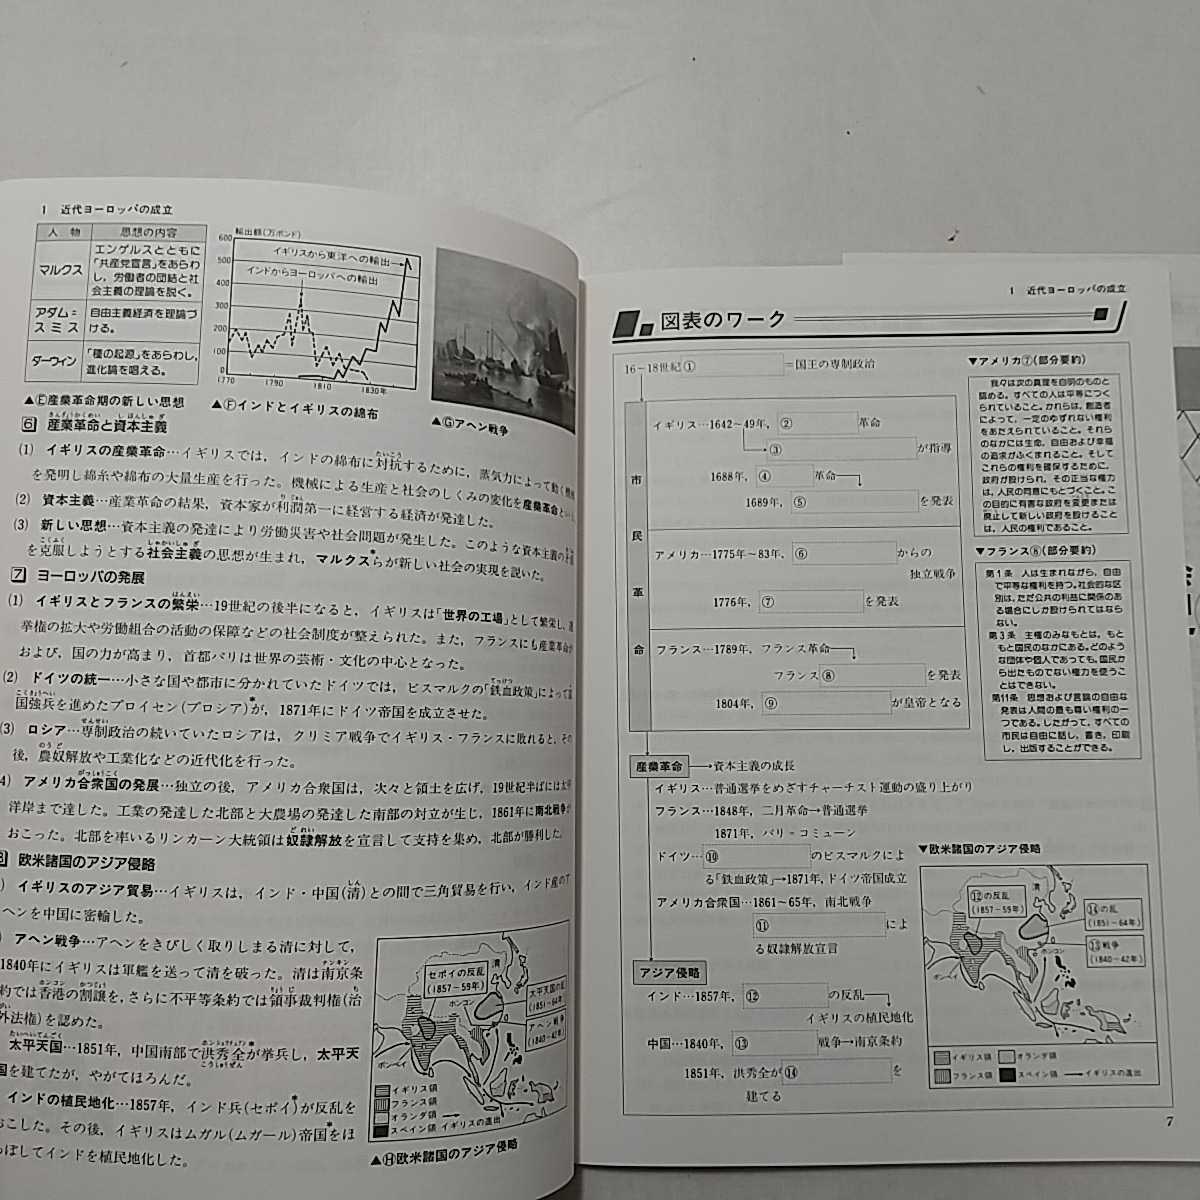 1 近代ヨーロッパの成立
人物 思想の内容
マルクス エンゲルスとともに「共産党宣言」をあらわし，労働者の団結と社会主義の理論を説く。
アダム＝スミス 自由主義経済を理論づける。
ダーウィン 「種の起源」をあらわし，進化論を唱える。
▲Ⓔ産業革命期の新しい思想
輸出額(万ポンド)
600
500
400
300
200
100
0
イギリスから東洋への輸出
インドからヨーロッパへの輸出
1770 1790 1810 1830年
▲Ⓕインドとイギリスの綿布
▲Ⓖアヘン戦争
6 産業革命と資本主義
(1) イギリスの産業革命…イギリスでは，インドの綿布に対抗するために，蒸気力によって動く機械
を発明し綿糸や綿布の大量生産を行った。機械による生産と社会のしくみの変化を産業革命という。
(2) 資本主義…産業革命の結果，資本家が利潤第一に経営する経済が発達した。
(3) 新しい思想…資本主義の発達により労働災害や社会問題が発生した。このような資本主義の
を克服しようとする社会主義の思想が生まれ，マルクス*らが新しい社会の実現を説いた。
7 ヨーロッパの発展
(1) イギリスとフランスの繁栄…19世紀の後半になると，イギリスは「世界の工場」として繁栄し，選
挙権の拡大や労働組合の活動の保障などの社会制度が整えられた。また，フランスにも産業革命が
および，国の力が高まり，首都パリは世界の芸術・文化の中心となった。
(2) ドイツの統一…小さな国や都市に分かれていたドイツでは，ビスマルクの「鉄血政策」によって富
国強兵を進めたプロイセン(プロシア)*が，1871年にドイツ帝国を成立させた。
(3) ロシア…専制政治の続いていたロシアは，クリミア戦争でイギリス・フランスに敗れると，その
後，農奴解放や工業化などの近代化を行った。
4) アメリカ合衆国の発展…独立の後，アメリカ合衆国は，次々と領土を広げ，19世紀半ばには太平
洋岸まで達した。工業の発達した北部と大農場の発達した南部の対立が生じ，1861年に南北戦争が
おこった。北部を率いるリンカーン大統領は奴隷解放を宣言して支持を集め，北部が勝利した。
8 欧米諸国のアジア侵略
) イギリスのアジア貿易…イギリスは，インド・中国(清)との間で三角貿易を行い，インド産のア
ヘンを中国に密輸した。
) アヘン戦争…アヘンをきびしく取りしまる清に対して，
1840年にイギリスは軍艦を送って清を破った。清は南京条
約では香港の割譲を，さらに不平等条約では領事裁判権(治
外法権)を認めた。
太平天国…1851年，中国南部で洪秀全*が挙兵し，太平天
国を建てたが，やがてほろんだ。
インドの植民地化…1857年，インド兵(セポイ)*が反乱を
おこした。その後，イギリスはムガル(ムガール)帝国*をほ
ろぼしてインドを植民地化した。
セポイの反乱
(1857～59年)
清
ホンコン
太平天国の乱
(1851～64年)
アヘン戦争
(1840～42年)
ボンベイ
イギリス領
フランス領
オランダ領
スペイン領 イギリスの進出
▲Ⓗ欧米諸国のアジア侵略
1 近代ヨーロッパの成立
図表のワーク
16～18世紀① ＝国王の専制政治
市民革命
イギリス…1642～49年，② 革命
③ が指導
1688年，④ 革命
1689年，⑤ を発表
アメリカ…1775年～83年，⑥ からの
独立戦争
1776年，⑦ を発表
フランス…1789年，フランス革命
フランス⑧ を発表
1804年，⑨ が皇帝となる
産業革命 →資本主義の成長
イギリス…普通選挙をめざすチャーチスト運動の盛り上がり
フランス…1848年，二月革命→普通選挙
1871年，パリ＝コミューン
ドイツ…⑩ のビスマルクによ
る「鉄血政策」→1871年，ドイツ帝国成立
アメリカ合衆国…1861～65年，南北戦争
⑪ によ
る奴隷解放宣言
アジア侵略
インド…1857年，⑫ の反乱
イギリスの植民地化
中国…1840年，⑬ 戦争→南京条約
1851年，洪秀全が⑭ を
建てる
▼アメリカ⑦(部分要約)
我々は次の真理を自明のものと
認める。すべての人は平等につく
られていること。かれらは，創造者
によって，一定のゆずれない権利
をあたえられていること。それら
のなかには生命，自由および幸福
の追求がふくまれること。そして
これらの権利を確保するために，
政府が設けられ，その正当な権力
は，人民の同意にもとづくこと。こ
の目的に有害な政府を変更または
廃止して新しい政府を設けること
は，人民の権利であること。
▼フランス⑧(部分要約)
第1条 人は生まれながら，自由
で平等な権利を持つ。社会的な区
別は，ただ公共の利益に関係のあ
る場合にしか設けられてはなら
ない。
第3条 主権のみなもとは，もと
もと国民のなかにある。どのよう
な団体や個人であっても，国民か
ら出たものでない権力を使うこ
とはできない。
第11条 思想および言論の自由な
発表は人間の最も尊い権利の一
つである。したがって，すべての
市民は自由に話し，書き，印刷
し，出版することができる。
▼欧米諸国のアジア侵略
⑫の反乱
(1857～59年)
清
⑭の乱
(1851～64年)
⑬戦争
(1840～42年)
ホンコン
ボンベイ
イギリス領 オランダ領
フランス領 スペイン領 →イギリスの進出
7